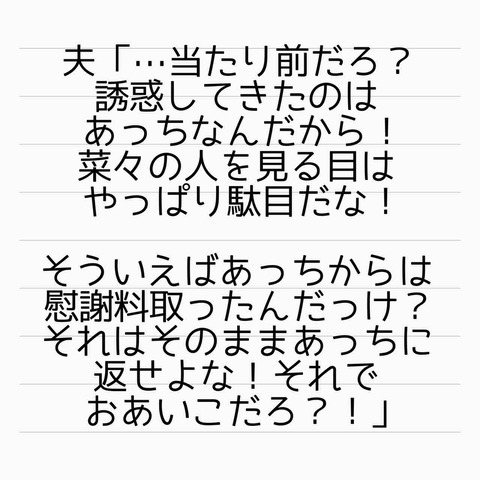 夫「…当たり前だろ？
誘惑してきたのは
あっちなんだから！
菜々の人を見る目は
やっぱり駄目だな！
そういえばあっちからは
慰謝料取ったんだっけ？
それはそのままあっちに
返せよな！それで
おあいこだろ？！」